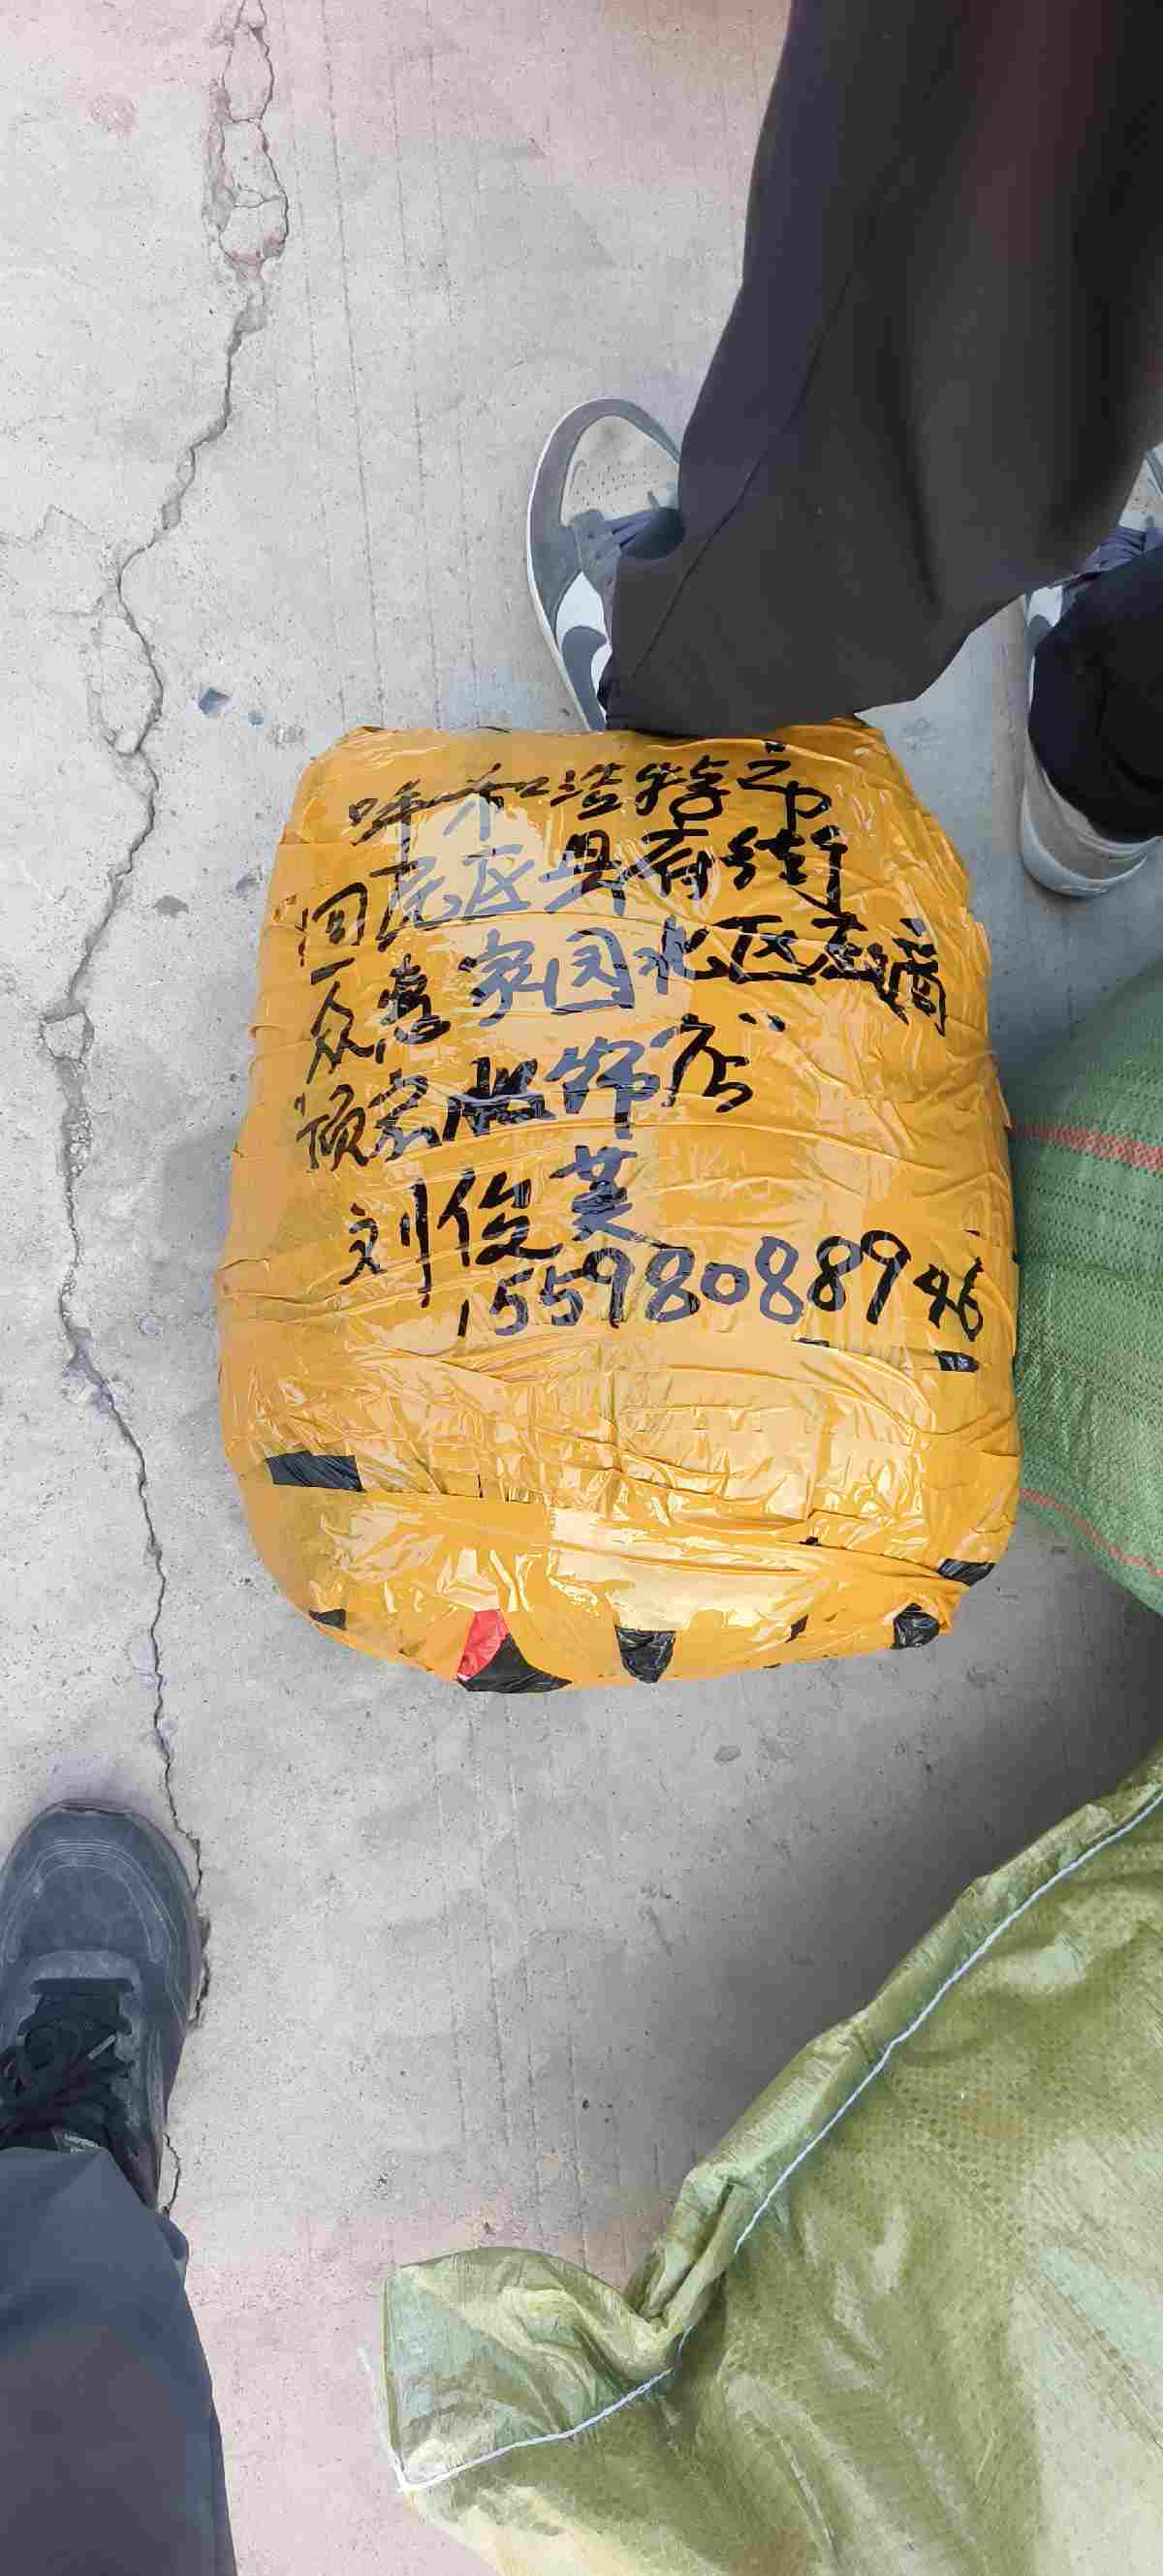 呼和浩特市
回民区县府街
众惠家园北区底商
顾家服饰店
刘俊英
15598088946